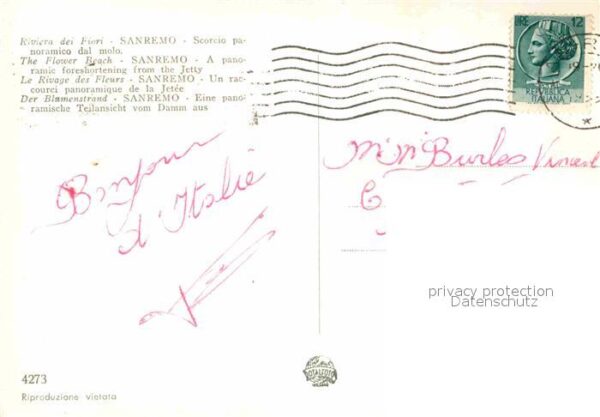 Riviera dei Fiori - SANREMO - Scorcio pa-
noramico dal molo.
The Flower Beach - SANREMO - A pano-
ramic foreshortening from the Jetty
Le Rivage des Fleurs - SANREMO - Un rac-
courci panoramique de la Jetée
Der Blumenstrand - SANREMO - Eine pano-
ramische Teilansicht vom Damm aus
IRE 12
REPVBBLICA
ITALIANA
Bonjour
d'Italie
Burles Vincent
privacy protection
Datenschutz
4273
Riproduzione vietata